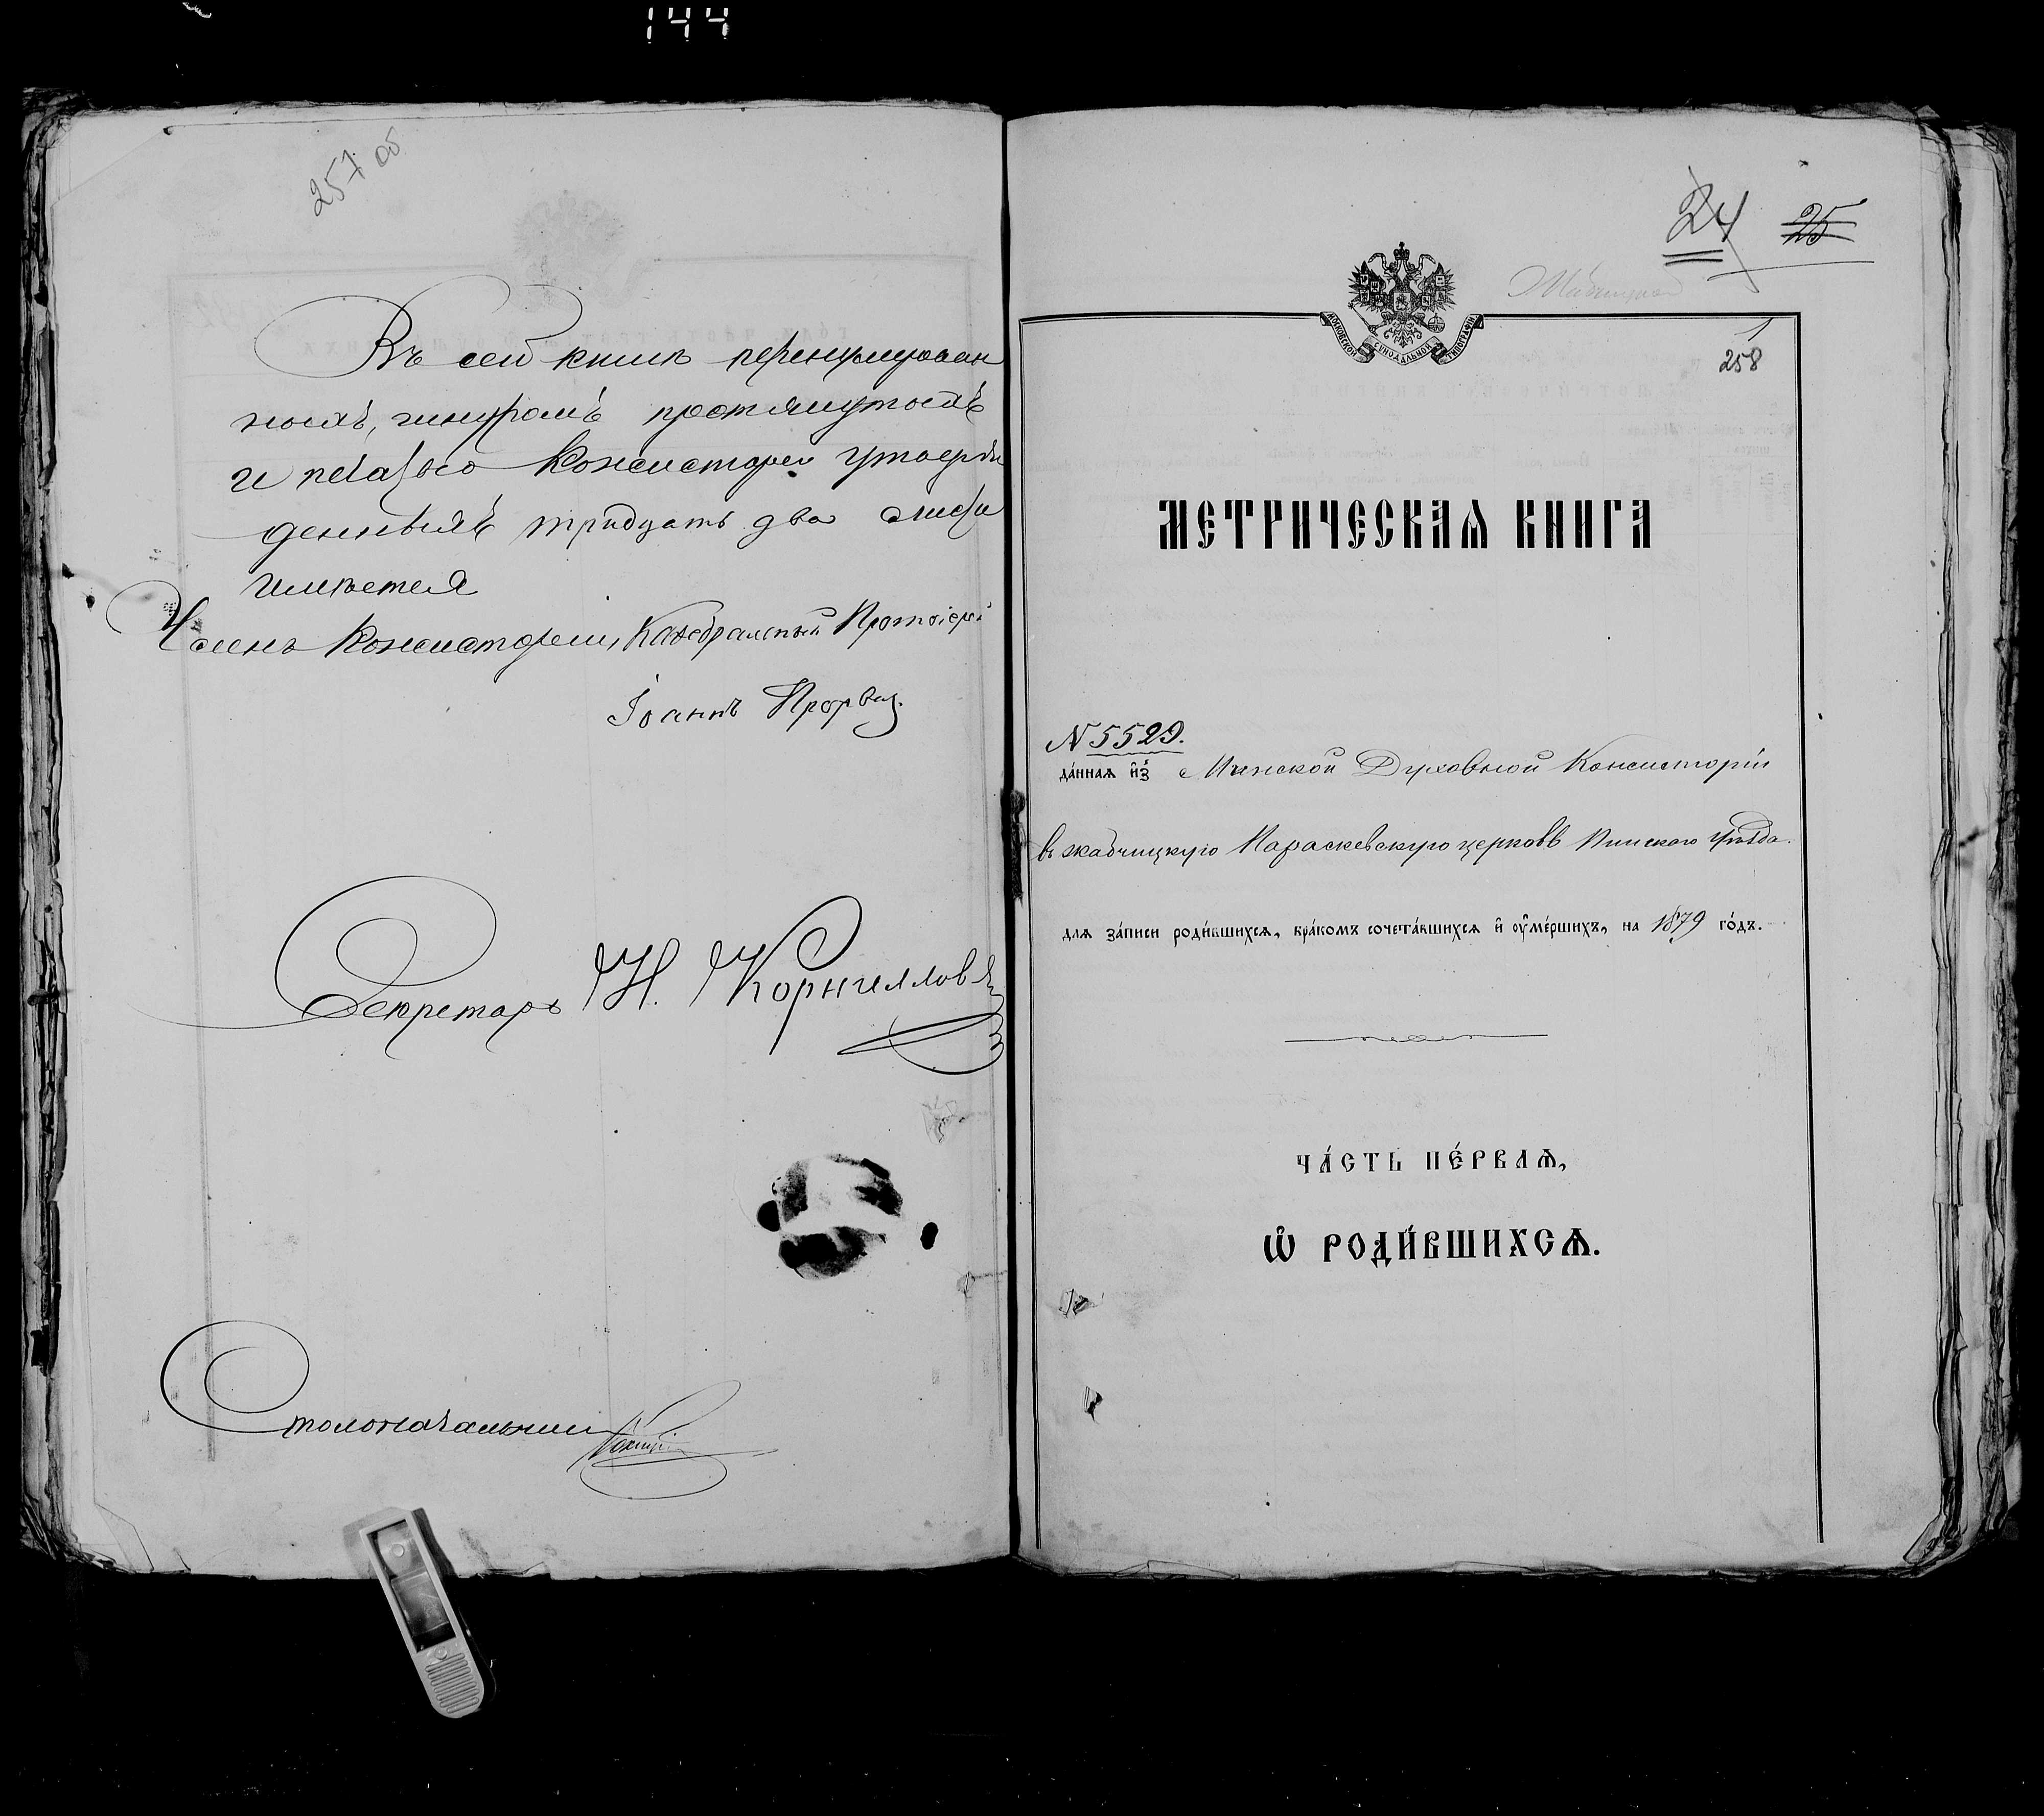 144
257 об
Въ сей книгѣ перенумерован
ныхъ, шнуромъ протянутыхъ
и печатью Консисторіи утверж
денныхъ тридцать два листа
имѣется
Членъ Консисторіи, Каѳедральный Протоіерей
Іоаннъ
Секретарь Н. Корнилловъ
Столоначальникъ
24 25
МОСКОВСКОЙ СѴНОДАЛЬНОЙ ТИПОГРАФІИ
1
258
МЕТРИЧЕСКАѦ КНИГА
N 5529.
да́ннаѧ и҆з̾ Минской Духовной Консисторіи
въ Жабчицкую Параскевскую церковь Пинскаго Уѣзда.
длѧ за́писи роди́вшихсѧ, бра́комъ сочета́вшихсѧ и҆ оу҆ме́ршихъ, на 1879 го́дъ.
ЧА́СТЬ ПЕ́РВАѦ,
Ѡ҆ РОДИ́ВШИХСѦ.